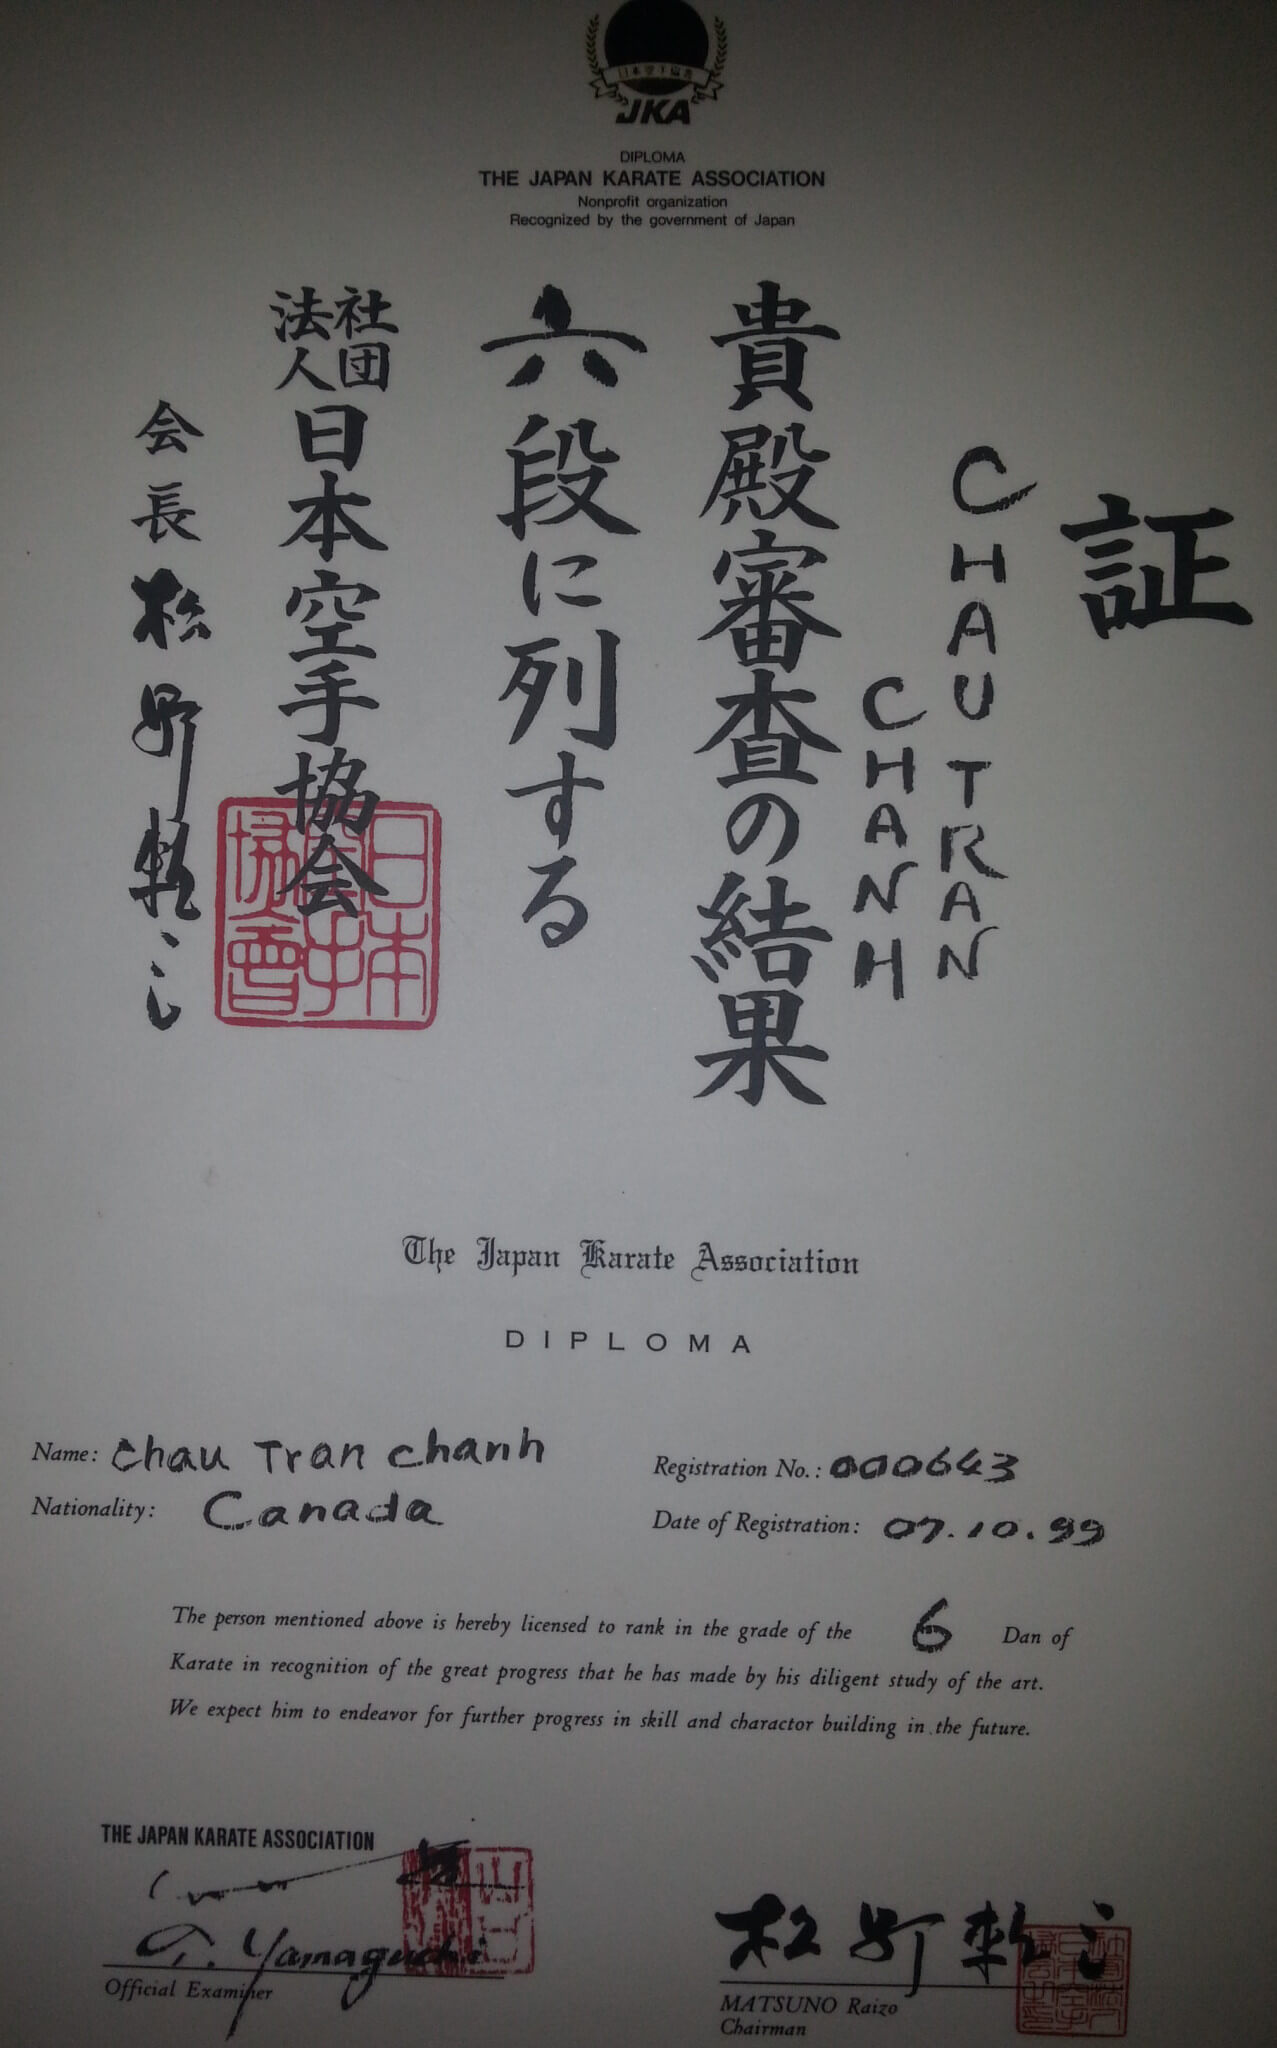 日本空手協会
JKA
DIPLOMA
THE JAPAN KARATE ASSOCIATION
Nonprofit organization
Recognized by the government of Japan
証
CHAU TRAN
CHANH
貴殿審査の結果
六段に列する
社団法人日本空手協会
会長 松野頼三
日本空手協會
The Japan Karate Association
DIPLOMA
Name: Chau Tran Chanh
Nationality: Canada
Registration No.: 000643
Date of Registration: 07.10.99
The person mentioned above is hereby licensed to rank in the grade of the 6 Dan of
Karate in recognition of the great progress that he has made by his diligent study of the art.
We expect him to endeavor for further progress in skill and charactor building in the future.
THE JAPAN KARATE ASSOCIATION
T. Yamaguchi
Official Examiner
松野頼三
MATSUNO Raizo
Chairman